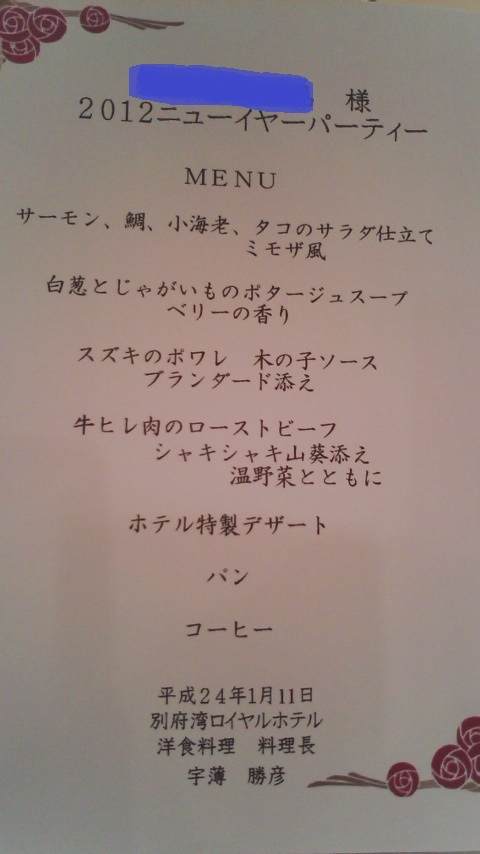 様
2012ニューイヤーパーティー
MENU
サーモン、鯛、小海老、タコのサラダ仕立て
ミモザ風
白葱とじゃがいものポタージュスープ
ベリーの香り
スズキのポワレ　木の子ソース
ブランダード添え
牛ヒレ肉のローストビーフ
シャキシャキ山葵添え
温野菜とともに
ホテル特製デザート
パン
コーヒー
平成24年1月11日
別府湾ロイヤルホテル
洋食料理　料理長
宇薄　勝彦